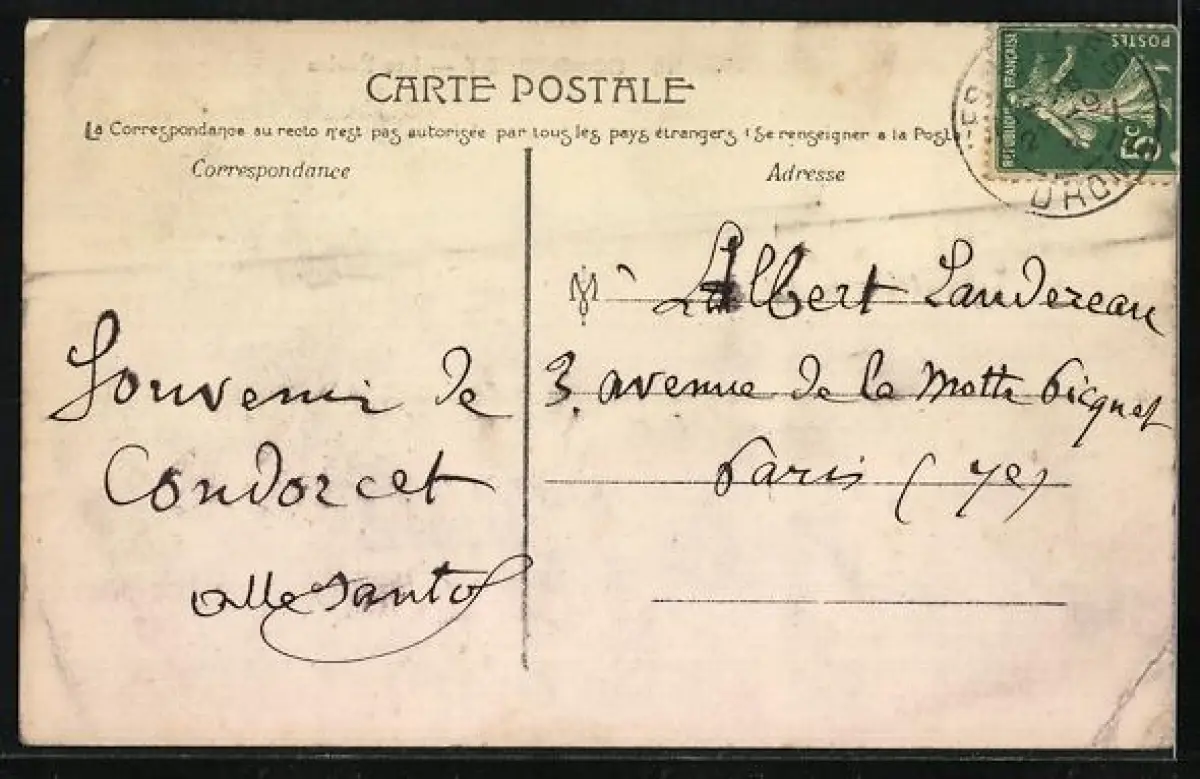 CARTE POSTALE
La Correspondance au recto n'est pas autorisée par tous les pays étrangers (Se renseigner a la Poste
Correspondance
Adresse
REPUBLIQUE FRANÇAISE
POSTES
5c
DROM
M
Albert Landereau
3. avenue de la Motte Picquet
Paris (7e)
Souvenir de
Condorcet